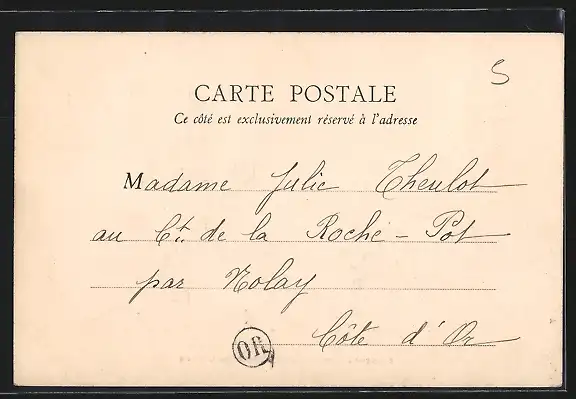 S
CARTE POSTALE
Ce côté est exclusivement réservé à l'adresse
Madame Julie Theulot
au Ct. de la Roche-Pot
par Nolay
Côte d'Or
OR